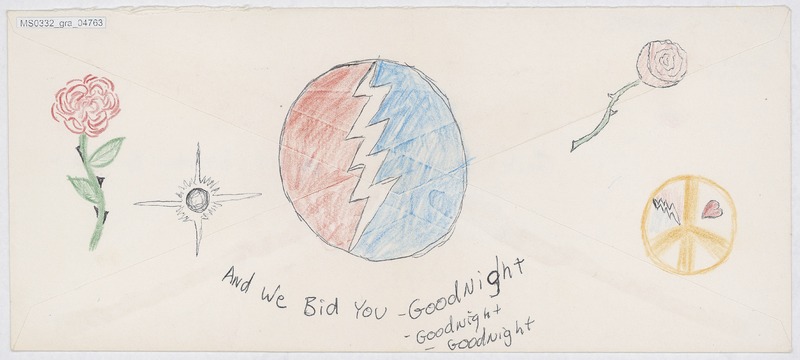 MS0332_gra_04763
And We Bid You - Goodnight
- Goodnight
- Goodnight